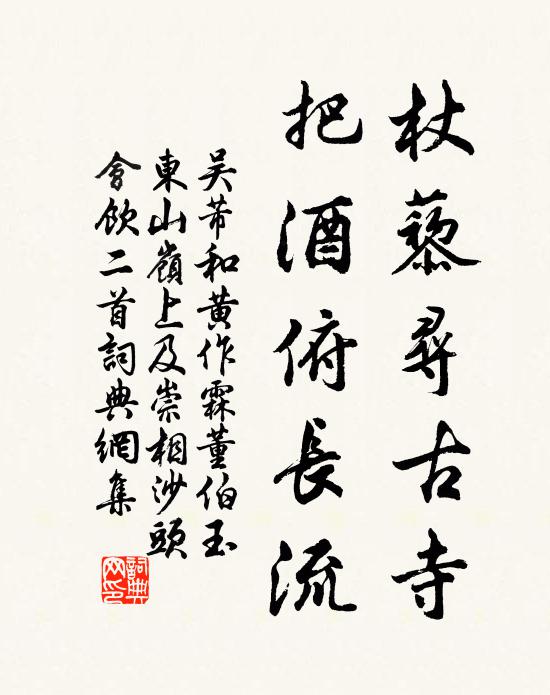 杖藜尋古寺
把酒俯長流
吴芾和黄作霖董伯玉
東山嶺上及崇相沙頭
會飲二首詞典網集
詞典网印